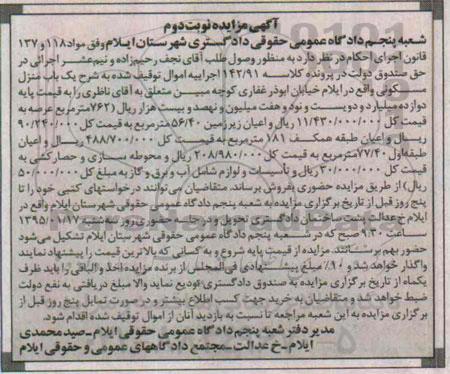 آگهی مزایده نوبت دوم
شعبه پنجم دادگاه عمومی حقوقی دادگستری شهرستان ایلام وفق مواد ۱۱۸ و ۱۳۷
قانون اجرای احکام در نظر دارد به منظور وصول طلب آقای نجف رحیم‌زاده و نیم‌عشر اجرائی در
حق صندوق دولت در پرونده کلاسه ۱۴۲/۹۱ اجراییه اموال توقیف شده به شرح یک باب منزل
مسکونی واقع در ایلام خیابان ابوذر غفاری کوچه مبین متعلق به آقای ناظری را به قیمت پایه
دوازده میلیارد و دویست و نود و هفت میلیون و نهصد و بیست هزار ریال (۷۶۲ مترمربع عرصه به
قیمت کل ۱۱/۴۳۰/۰۰۰/۰۰۰ ریال و اعیان زیرزمین ۵۶/۴۰ مترمربع به قیمت کل ۹۰/۲۴۰/۰۰۰
ریال و اعیان طبقه همکف ۱۸۱ مترمربع به قیمت کل ۴۸۸/۷۰۰/۰۰۰ ریال و اعیان
طبقه‌اول ۷۷/۴۰ مترمربع به قیمت کل ۲۰۸/۹۸۰/۰۰۰ ریال و محوطه سازی و حصارکشی به
قیمت کل ۳۰/۰۰۰/۰۰۰ ریال و تأسیسات و لوازم شامل آب و برق و گاز به مبلغ کل ۵۰/۰۰۰/۰۰۰
ریال) از طریق مزایده حضوری بفروش برساند. متقاضیان می‌توانند درخواستهای کتبی خود را تا
پنج روز قبل از تاریخ برگزاری مزایده به شعبه پنجم دادگاه عمومی حقوقی شهرستان ایلام واقع در
ایلام خ عدالت پشت ساختمان دادگستری تحویل و در جلسه حضوری روز سه‌شنبه ۱۳۹۵/۰۷/۱۷
ساعت ۹:۳۰ صبح که در شعبه پنجم دادگاه عمومی حقوقی شهرستان ایلام تشکیل می‌شود
حضور بهم برسانند. مزایده از قیمت پایه شروع و به کسانی که بالاترین قیمت را پیشنهاد نمایند
واگذار خواهد شد و ۱۰٪ مبلغ پیشنهادی فی‌المجلس از برنده مزایده اخذ و الباقی را باید ظرف
یکماه از تاریخ برگزاری مزایده به صندوق دادگستری تودیع نماید والا مبلغ دریافتی به نفع دولت
ضبط خواهد شد و متقاضیان به خرید جهت کسب اطلاع بیشتر و در صورت تمایل پنج روز قبل از
برگزاری مزایده به این شعبه مراجعه تا نسبت به بازدید آنان از اموال توقیف شده اقدام شود.
مدیر دفتر شعبه پنجم دادگاه عمومی حقوقی ایلام ـ صید محمدی
ایلام ـ خ عدالت ـ مجتمع دادگاههای عمومی و حقوقی ایلام